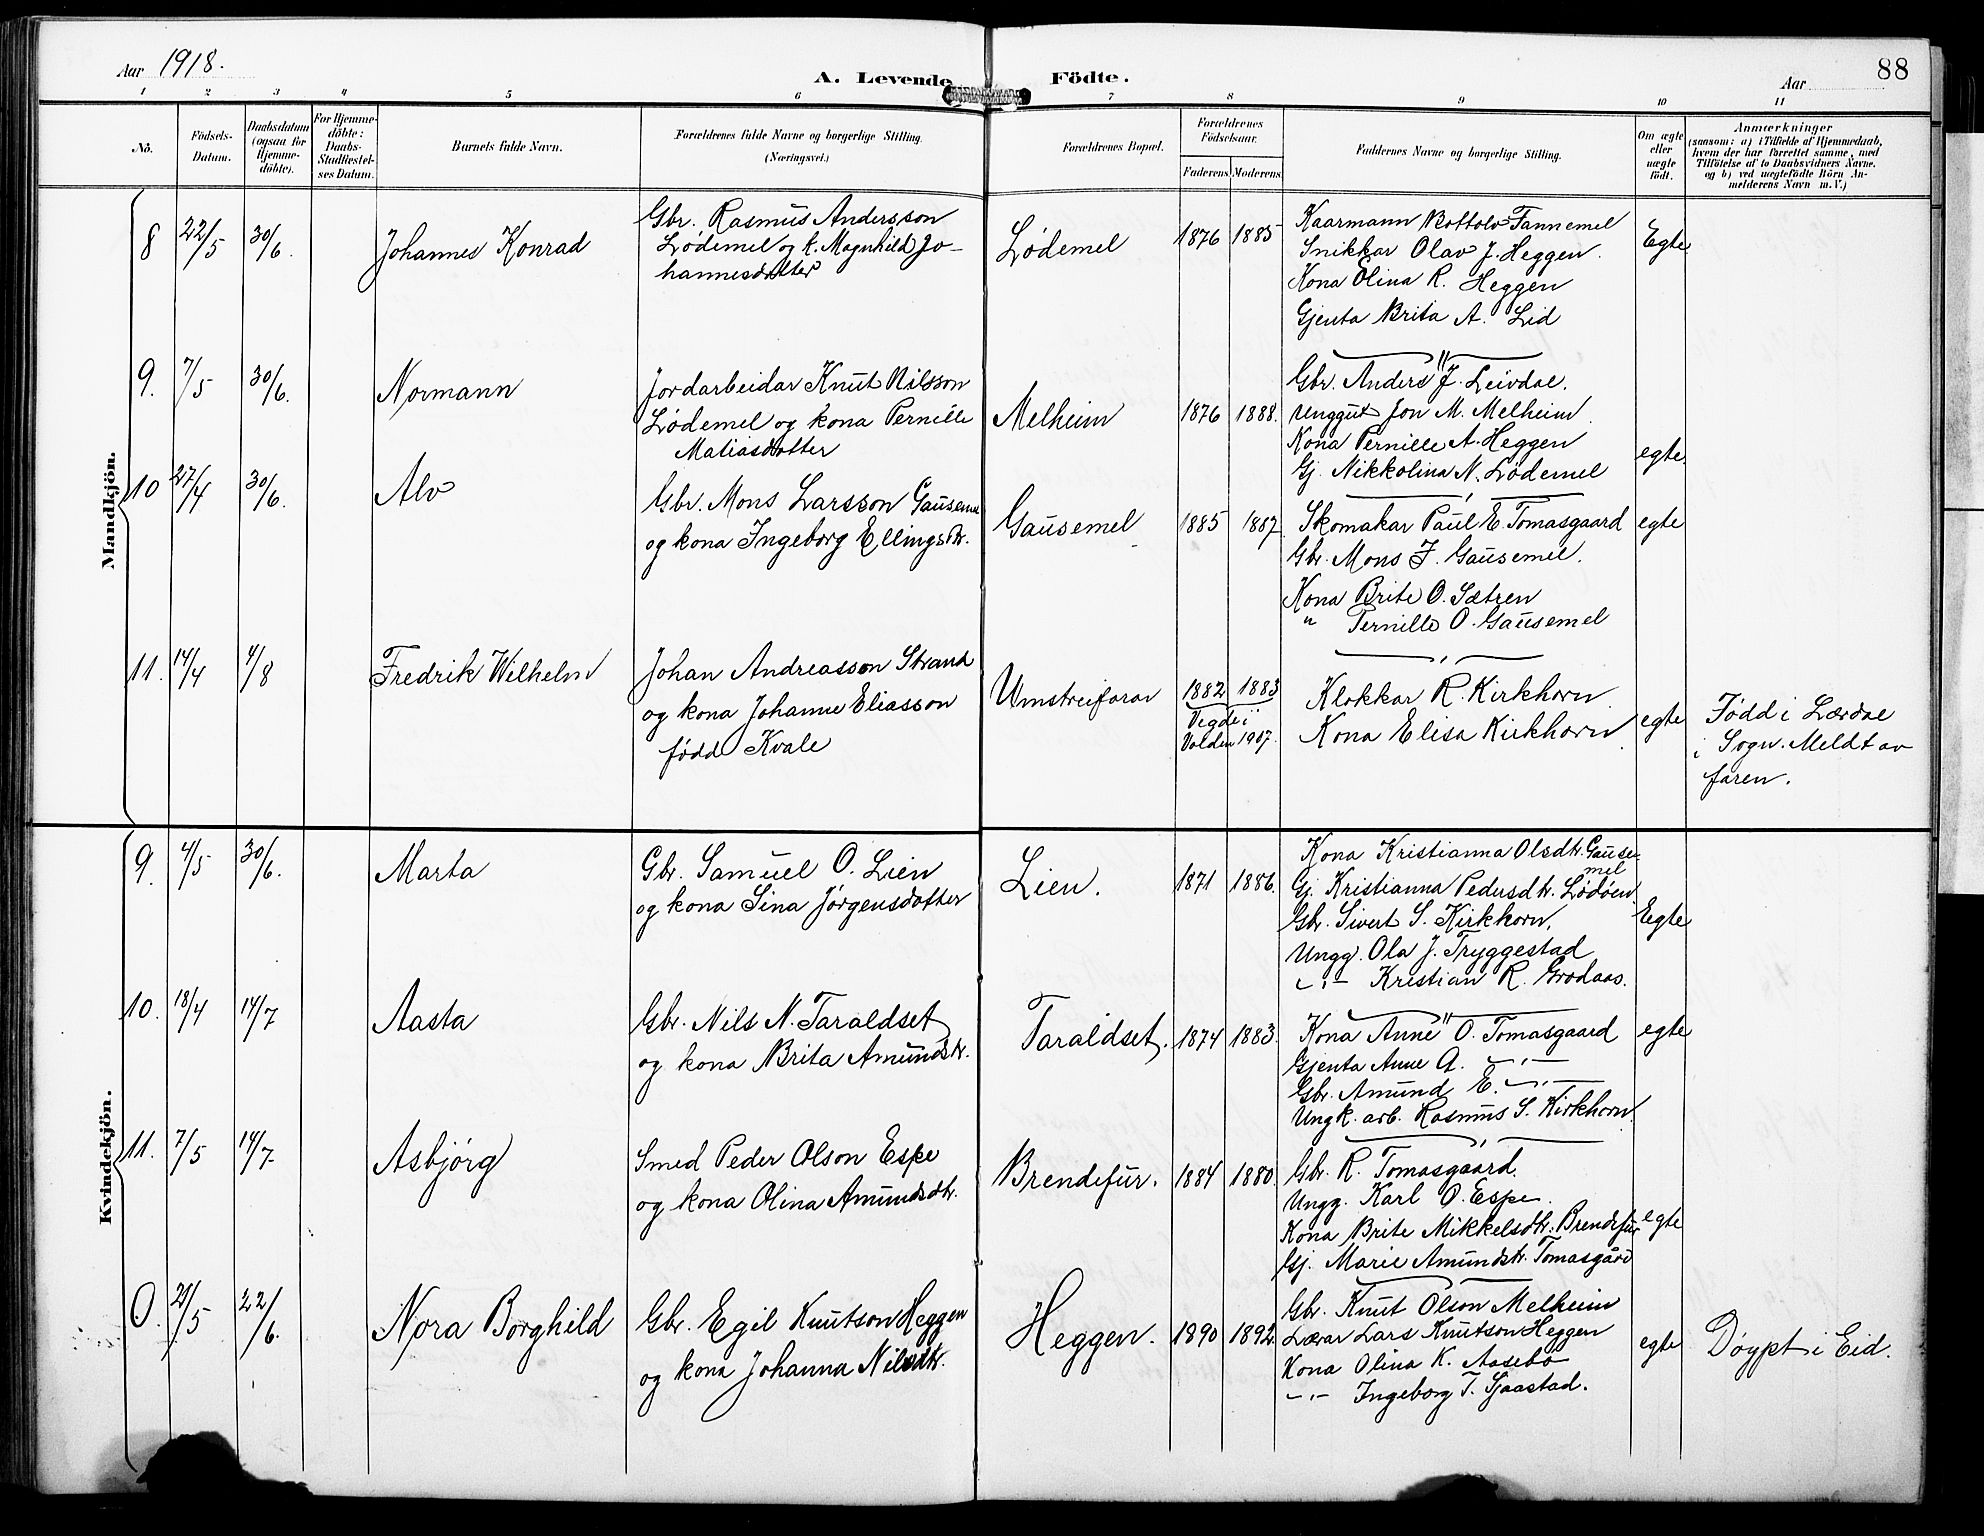 Aar 1918.
A. Levende Födte.
Aar
88
1 2 3 4 5 6 7 8 9 10 11
No.
Födsels-Datum.
Daabsdatum (ogsaa for Hjemme-döbte).
For Hjemme-döbte: Daabs-Stadfæstel-ses Datum.
Barnets fulde Navn.
Forældrenes fulde Navne og borgerlige Stilling.
(Næringsvei.)
Forældrenes Bopæl.
Forældrenes Födselsaar.
Faderens Moderens
Faddernes Navne og borgerlige Stilling.
Om ægte eller uægte födt.
Anmærkninger
(saasom: a) i Tilfælde af Hjemmedaab,
hvem der har forrettet samme, med
Tilföielse af to Daabsvidners Navne.
og b) ved uægtefödte Börn An-
melderens Navn m. V.)
Mandkjön.
8 22/5 30/6. Johannes Konrad
Gbr. Rasmus Andersson
Lødemel og k. Magnhild Jo-
hannesdotter
Lödemel 1876 1885
Kaarmann Bottolv Fannemel
Snikkar Olav J. Heggen.
Kona Olina R. Heggen
Gjenta Brita A. Lid
Egte
9. 7/5 30/6. Normann
Jordarbeidar Knut Nilsson
Lødemel og kona Pernille
Matiasdotter
Melheim 1876 1888.
Gbr. Anders J. Leivdal.
Unggut Jon M. Melheim
Kona Pernille A. Heggen
Gj. Nikkolina N. Lødemel
egte.
10 27/4 30/6. Alv
Gbr. Mons Larsson Gausemel
og kona Ingeborg Ellingsdtr.
Gausemel 1885 1887
Skomakar Paul E. Tomasgaard
Gbr. Mons J. Gausemel.
Kona Brite O. Sætren
" Pernille O. Gausemel
egte
11. 14/4 4/8 Fredrik Wilhelm
Johan Andreasson Strand
og kona Johanne Eliasson
født Kvale
Umstreifarar 1882 1883
Vigde i
Volden 1907.
Klokkar R. Kirkhorn
Kona Elisa Kirkhorn
egte
Fødd i Lærdal
i Sogn. Meldt av
faren.
Kvindekjön.
9. 4/5 30/6. Marta
Gbr. Samuel O. Lien
og kona Sina Jørgensdotter
Lien. 1871 1886.
Kona Kristianna Olsdtr. Gause-
mel
Gj. Kristianna Pedersdtr. Lødøen
Gbr. Sivert S. Kirkhorn.
Ungg. Ola J. Tryggestad
-"- Kristian R. Grodaas.
Egte
10. 18/4 14/7 Aasta
Gbr. Nils N. Taraldset
og kona Brita Amundsdtr.
Taraldset. 1874 1883.
Kona Anne O. Tomasgaard
Gjenta Anne A. -"-
Gbr. Amund E. -"-
Ungk. arb. Rasmus S. Kirkhorn.
egte
11. 7/5 14/7. Asbjörg
Smed Peder Olson Espe
og kona Olina Amundsdtr.
Brendefur. 1884 1880.
Gbr. R. Tomasgaard.
Ungg. Karl O. Espe.
Kona Brite Mikkelsdtr. Brendefur
Gj. Marie Amundsdtr. Tomasgård
egte
0. 21/5 22/6. Nora Borghild
Gbr. Egil Knutson Heggen
og kona Johanna Nilsdtr.
Heggen. 1890 1892.
Gbr. Knut Olson Melheim
Lærar Lars Knutson Heggen
Kona Olina K. Aasebø
-"- Ingeborg T. Sjaastad.
egte
Döypt i Eid.